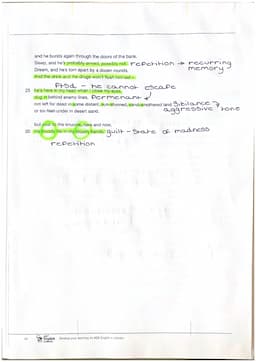 and he bursts again through the doors of the bank.
Sleep, and he's probably armed, possibly not. repetition → recurring memory
Dream, and he's torn apart by a dozen rounds.
And the drink and the drugs won't flush him out –
PTSD - he cannot escape
25 he's here in my head when I close my eyes,
dug in behind enemy lines, permenant
not left for dead in some distant, sun-stunned, sand-smothered land Sibilance - aggressive tone
or six-feet-under in desert sand,
but near to the knuckle, here and now,
30 his bloody life in my bloody hands. guilt - state of madness
repetition
English